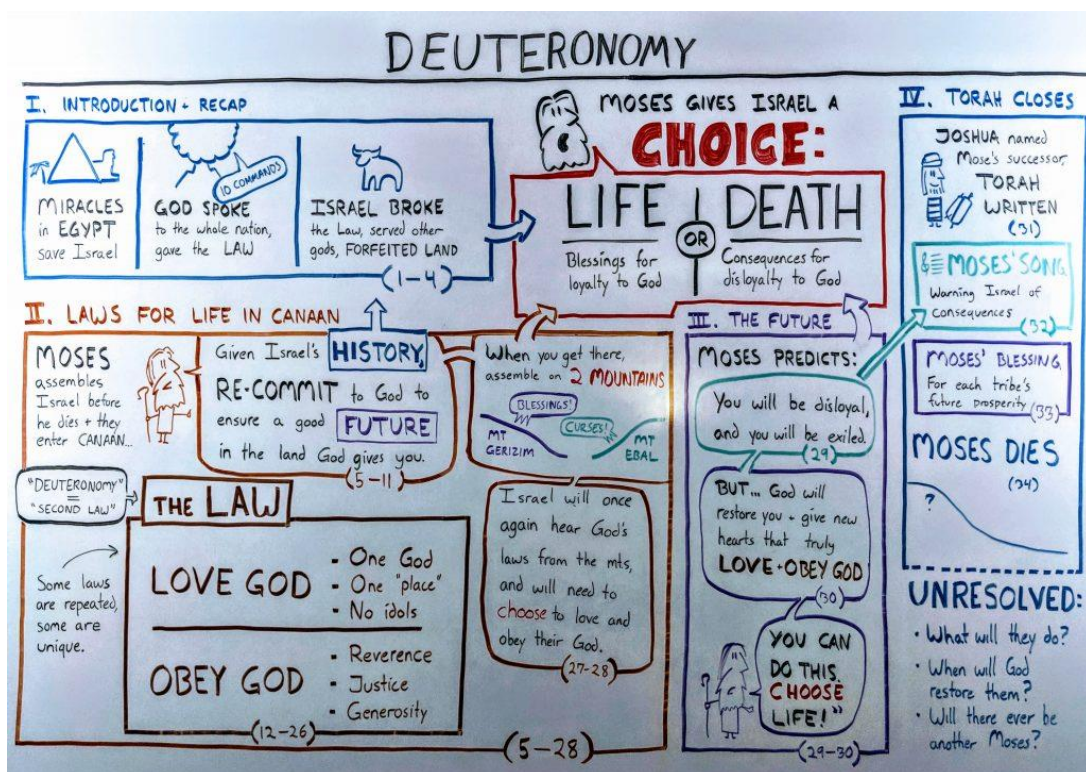 DEUTERONOMY
I. INTRODUCTION + RECAP
MIRACLES
in EGYPT
save Israel
10 COMMANDS
GOD SPOKE
to the whole nation,
gave the LAW
ISRAEL BROKE
the Law, served other
gods, FORFEITED LAND
(1-4)
MOSES GIVES ISRAEL A
CHOICE:
LIFE
Blessings for
loyalty to God
OR
DEATH
Consequences for
disloyalty to God
II. LAWS FOR LIFE IN CANAAN
MOSES
assembles
Israel before
he dies + they
enter CANAAN...
Given Israel's HISTORY,
RE-COMMIT to God to
ensure a good FUTURE
in the land God gives you.
(5-11)
When you get there,
assemble on 2 MOUNTAINS
BLESSINGS!
MT
GERIZIM
CURSES!
MT
EBAL
"DEUTERONOMY"
=
"SECOND LAW"
Some laws
are repeated,
some are
unique.
THE LAW
LOVE GOD
- One God
- One "place"
- No idols
OBEY GOD
- Reverence
- Justice
- Generosity
(12-26)
Israel will once
again hear God's
laws from the mts,
and will need to
choose to love and
obey their God.
(27-28)
(5-28)
III. THE FUTURE
MOSES PREDICTS:
You will be disloyal,
and you will be exiled.
(29)
BUT... God will
restore you + give new
hearts that truly
LOVE + OBEY GOD
(30)
YOU CAN
DO THIS.
CHOOSE
LIFE!"
(29-30)
IV. TORAH CLOSES
JOSHUA named
Mose's successor,
TORAH
WRITTEN
(31)
MOSES' SONG
Warning Israel of
consequences
(32)
MOSES' BLESSING
For each tribe's
future prosperity
(33)
MOSES DIES
(34)
?
UNRESOLVED:
• What will they do?
• When will God
restore them?
• Will there ever be
another Moses?